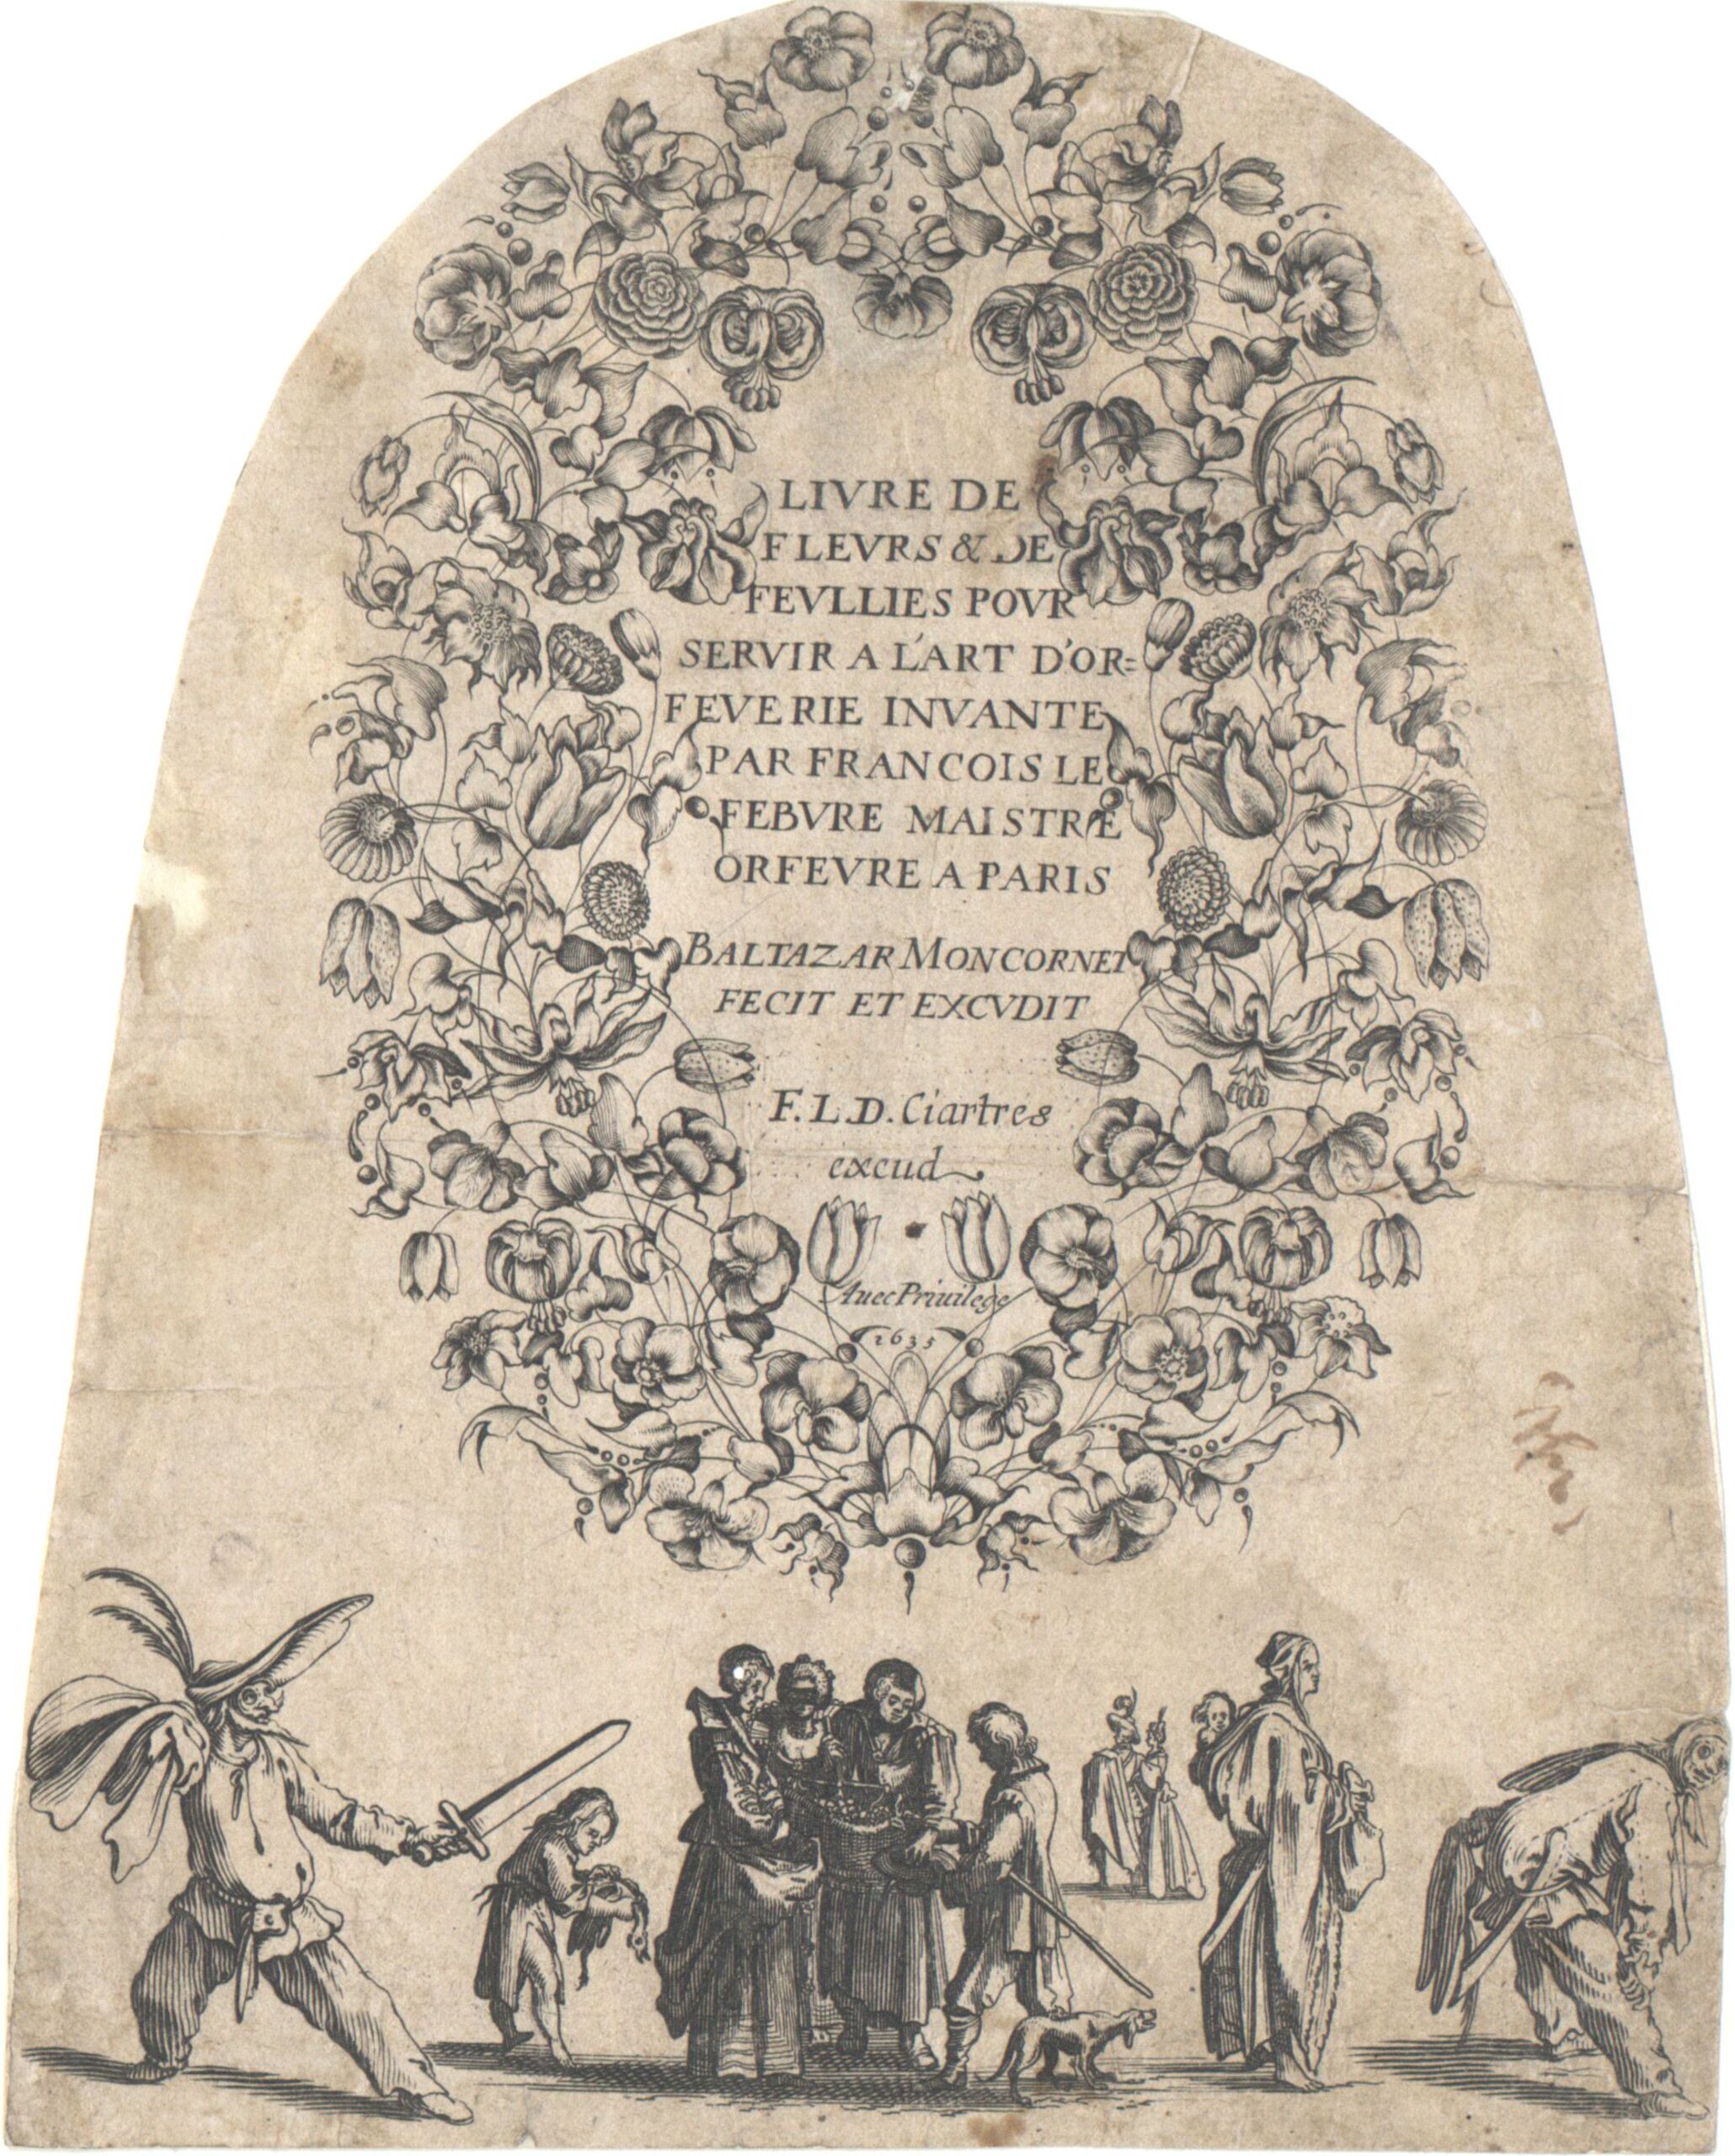 LIVRE DE
FLEVRS & DE
FEVLLIES POVR
SERVIR A L'ART D'OR=
FEVERIE INVANTE
PAR FRANCOIS LE
FEBVRE MAISTRE
ORFEVRE A PARIS
BALTAZAR MONCORNET
FECIT ET EXCVDIT
F. L. D. Ciartres
excud
Auec Priuilege
1635